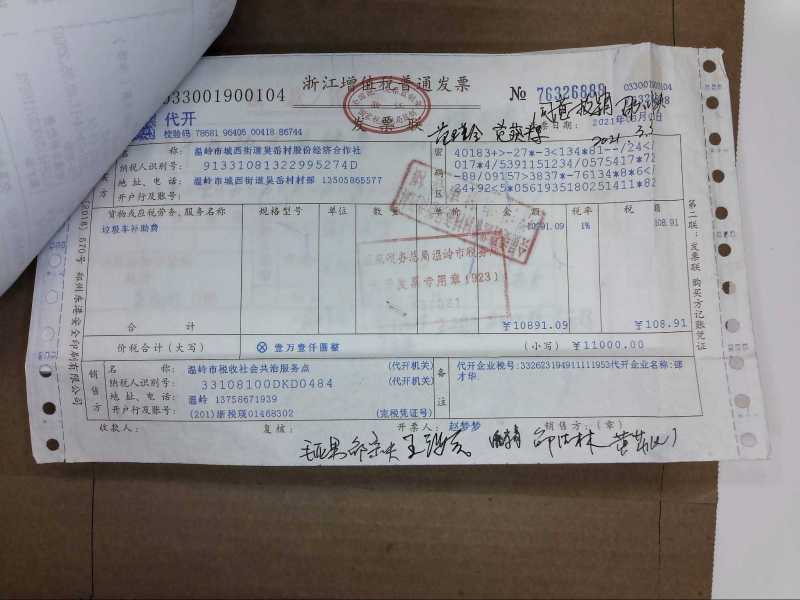 033001900104
浙江增值税普通发票
No 76326889
033001900104
76326889
代开
校验码 78581 96405 00418 86744
发票联
2021.3.3
名 称: 温岭市城西街道吴岙村股份经济合作社
纳税人识别号: 91331081322995274D
地址、电话: 温岭市城西街道吴岙村村部 13505865577
开户行及账号:
密码区
40183+>-27*-3<134*81--/24</
017*4/5391151234/0575417*72
-88/09157>3837*-76134*8*6</
24+92<5*05619351802514 11*82
货物或应税劳务、服务名称 规格型号 单位 数量 单价 金额 税率 税额
垃圾车补助费 10891.09 1% 108.91
合计 ¥10891.09 ¥108.91
价税合计(大写) ⊗壹万壹仟圆整 (小写) ¥11000.00
销售方
名 称: 温岭市税收社会共治服务点 (代开机关)
纳税人识别号: 33108100DKD0484 (代开机关)
地址、电话: 温岭 13758671939
开户行及账号: (201)浙税琰01468302 (完税凭证号)
备注
代开企业税号:332623194911111953代开企业名称:邵才华
收款人: 复核: 开票人: 赵梦梦 销售方:(章)
第二联:发票联 购买方记账凭证
发票专用章(923)